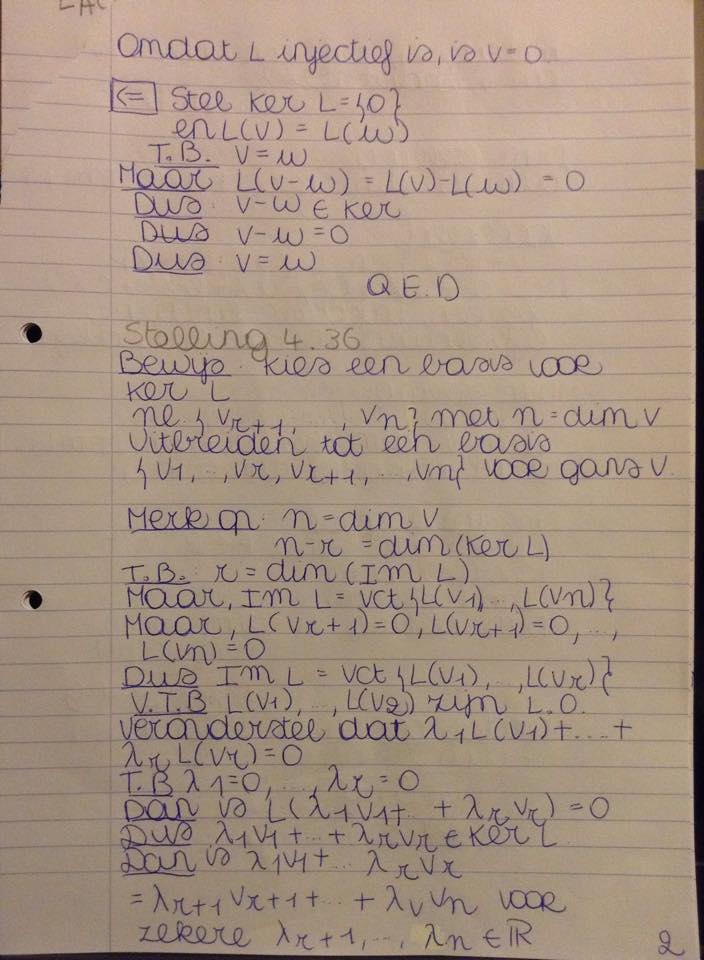 Omdat L injectief is, is v=0.
<= Stel ker L = {0}
en L(v) = L(w)
T.B. v=w
Maar L(v-w) = L(v)-L(w) = 0
Dus v-w ∈ ker
Dus v-w=0
Dus: v=w
Q.E.D
Stelling 4.36
Bewijs kies een basis voor
ker L
nl. {vr+1, ..., vn} met n=dim V
Uitbreiden tot een basis
{v1, .., vr, vr+1, .., vn} voor gans V.
Merk op: n=dim V
n-r = dim(Ker L)
T.B. r = dim(Im L)
Maar, Im L = vct {L(v1), ..., L(vn)}
Maar, L(vr+1)=0, L(vr+1)=0, ...,
L(vn)=0
Dus Im L = vct {L(v1), .., L(vr)}
V.T.B L(v1), .., L(v2) zijn L.O.
veronderstel dat λ1L(v1)+...+
λr L(vr)=0
T.B λ1=0, ..., λr=0
Dan is L(λ1v1+.. + λrvr) = 0
Dus λ1v1+..+λrvr ∈ Ker L
Dan is λ1v1+... λrvr
=λr+1vr+1+.. + λvvn voor
zekere λr+1, .., λn ∈ ℝ
2